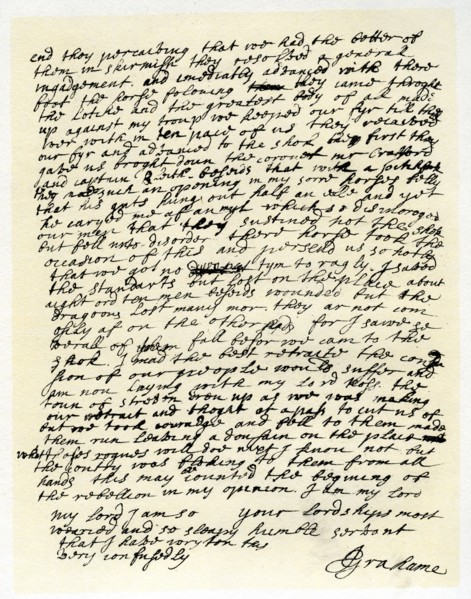 end they percaiving that we had the better of
them in skirmish they resolved a general
ingadgement and imediatly advanced with there
foot the horse folouing they came throght
the lotche and the greatest body of all made
up against my troup we keeped our fyr till they
wer with in ten pace of us they recaived
our fyr and advanced to the shok the first they
gave us broght doun the coronet mr Crafford
and captain Bleith besids that with a pitchfork
they mad such an opening in my sorre horses belly
that his guts hung out half an elle and yet
he caryed me af an myl which so discoroged
our men that they sustined not the shok
but fell unto disorder there horse took the
ocasion of this and perseud us so hotly
that we got no tym to ragly I saved
the standarts but lost on the place about
aight ord ten men besids wounded but the
dragoons lost many mor. they ar not com
esily af on the other side for I sawe se
verall of them fall befor we cam to the
shok. I mad the best retraite the con
fusion of our people would suffer and
am now laying with my Lord Ross. the
toun of streven dreu up as we was making
our retrait and thoght of a pass to cut us of
but we took courage and fell to them made
them run leaving a dousain on the place
what these rogues will doe yet I know not but
the contry was floking to them from all
hands this may be counted the begining of
the rebellion in my opinion. I am my lord
my lord I am so your lordships most
wearied and so sleapy humble servent
that I have wryton this
very confusedly
JGrahame